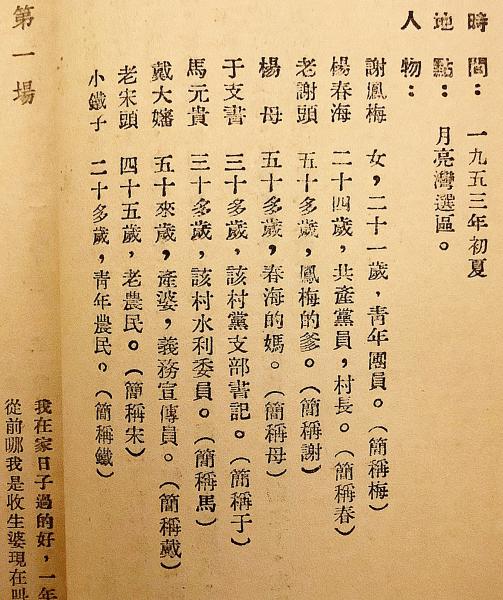 時間：一九五三年初夏
地點：月亮灣選區。
人物：
謝鳳梅 女，二十一歲，青年團員。（簡稱梅）
楊春海 二十四歲，共產黨員，村長。（簡稱春）
老謝頭 五十多歲，鳳梅的爹。（簡稱謝）
楊 母 五十多歲，春海的媽。（簡稱母）
于支書 三十多歲，該村黨支部書記。（簡稱于）
馬元貴 三十多歲，該村水利委員。（簡稱馬）
戴大嬸 五十來歲，產婆，義務宣傳員。（簡稱戴）
老宋頭 四十五歲，老農民。（簡稱宋）
小鐵子 二十多歲，青年農民。（簡稱鐵）
第一場
我在家日子過的好，一年
從前哪我是收生婆現在